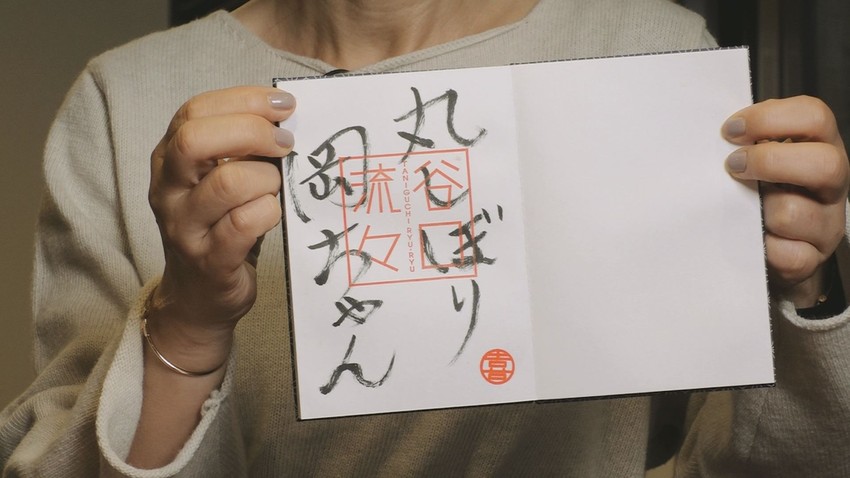 丸しぼり
岡ちゃん
谷口
流々
TANIGUCHI RYU-RYU
喜